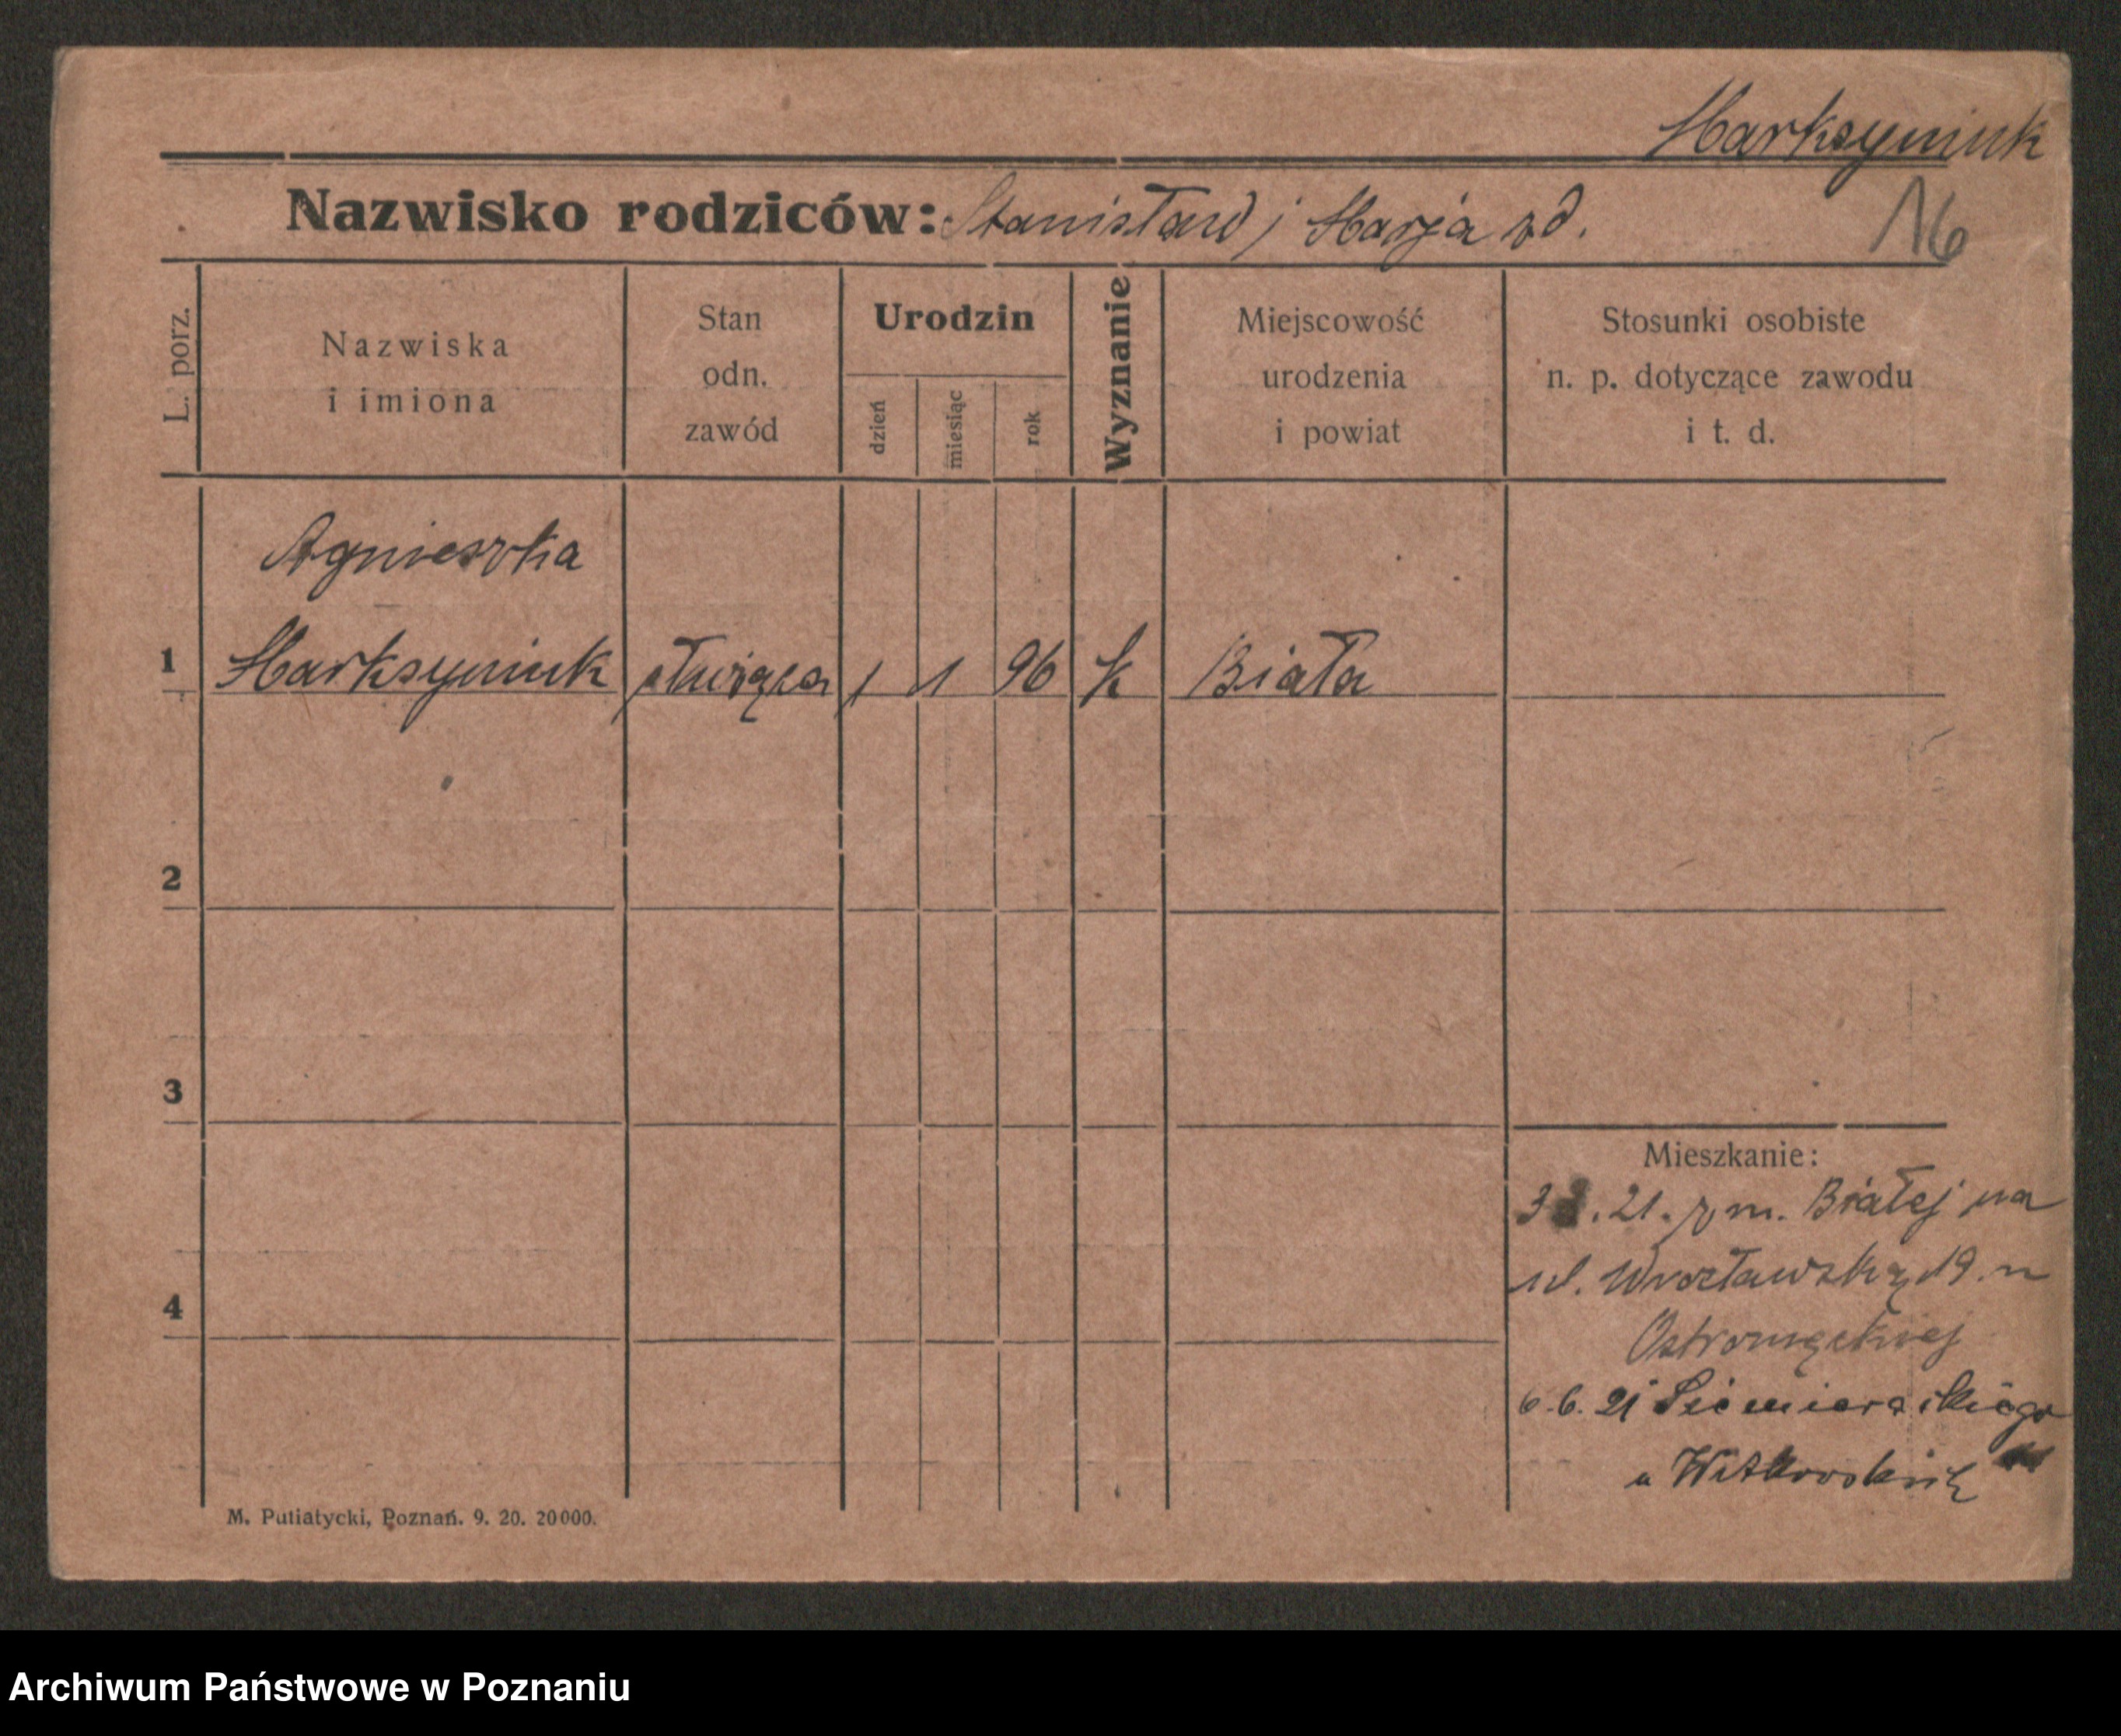 Marksyniuk
Nazwisko rodziców: Stanisław i Marja zd.
16
L. porz.
Nazwiska
i imiona
Stan
odn.
zawód
Urodzin
dzień
miesiąc
rok
Wyznanie
Miejscowość
urodzenia
i powiat
Stosunki osobiste
n. p. dotyczące zawodu
i t. d.
Agnieszka
1 Marksyniuk służąca 1 1 96 k Biała
2
3
Mieszkanie:
21. z m. Białej na
ul. Wrocławską 19. u
4
6.6.21 Siemieradzkiego
u Witkowskich
M. Putiatycki, Poznań. 9. 20. 20000.
Archiwum Państwowe w Poznaniu